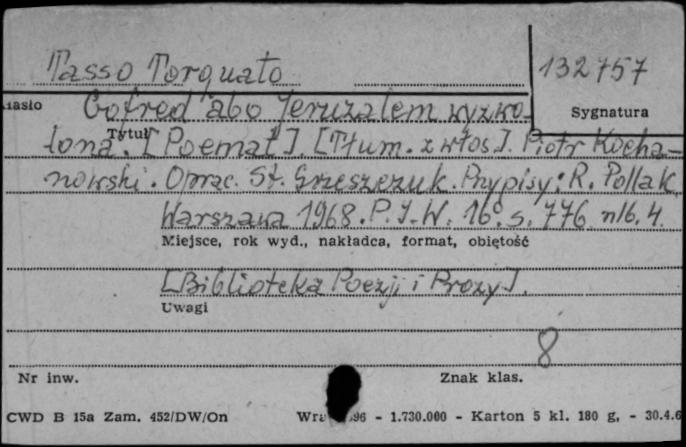 Tasso Torquato
132757
Hasło
Gofred abo Jeruzalem wyzwo-
Sygnatura
Tytuł
lona. [Poemat]. [Tłum. z włos]. Piotr Kocha-
nowski. Oprac. St. Grzeszczuk. Przypisy: R. Pollak.
Warszawa 1968. P.I.W. 16° s. 776 nlb. 4.
Miejsce, rok wyd., nakładca, format, objętość
[Biblioteka Poezji i Prozy].
Uwagi
8
Nr inw. Znak klas.
CWD B 15a Zam. 452/DW/On 96 - 1.730.000 - Karton 5 kl. 180 g, - 30.4.6